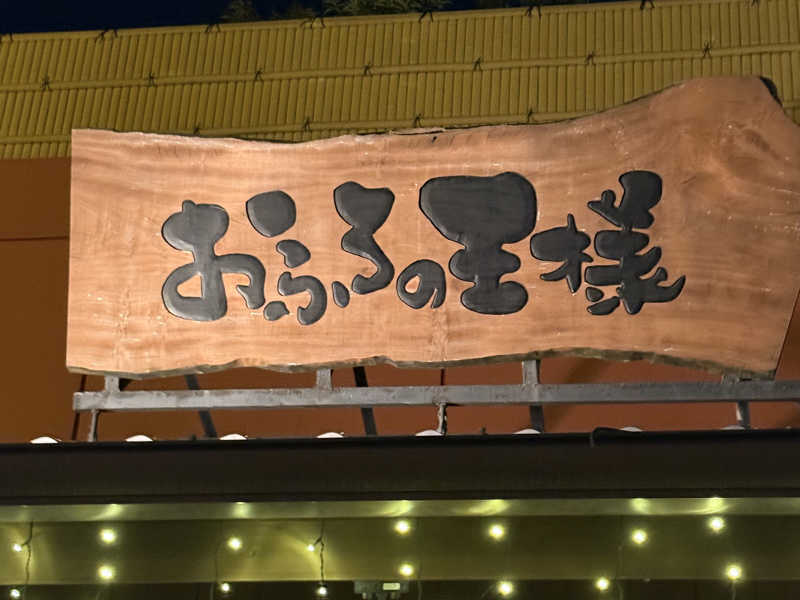 おふろの王様